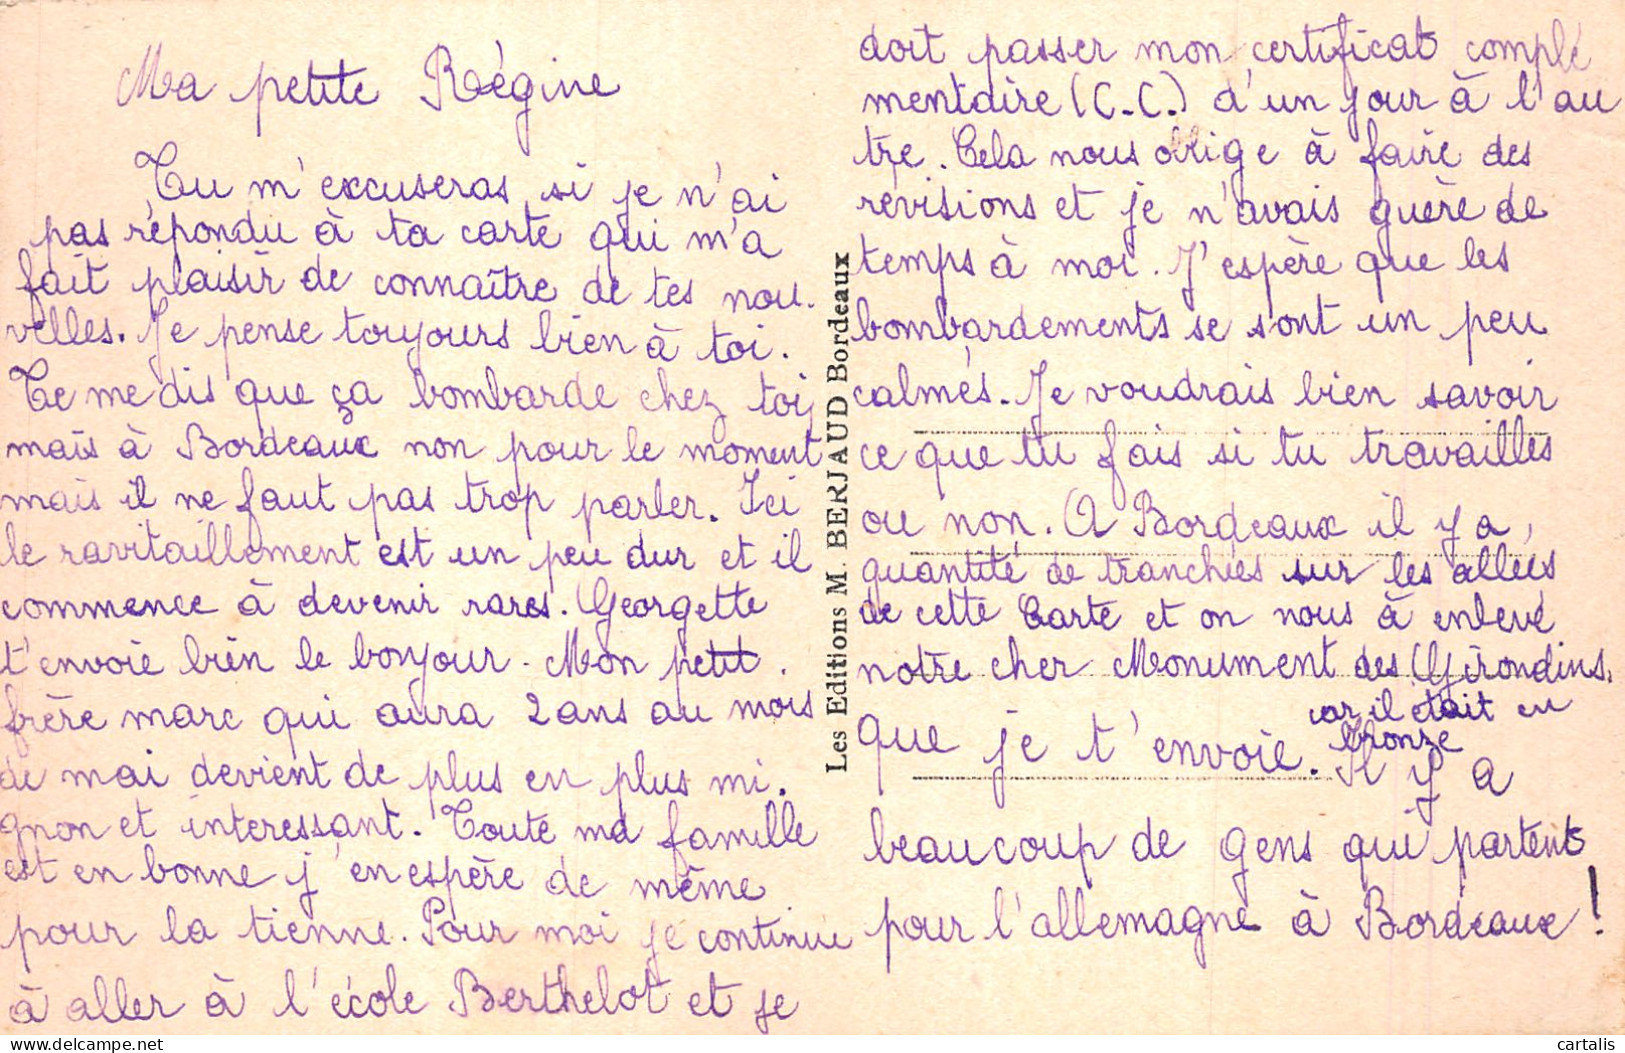 Ma petite Régine
Tu m'excuseras si je n'ai
pas répondu à ta carte qui m'a
fait plaisir de connaître de tes nou-
velles. Je pense toujours bien à toi.
Te me dis que ça bombarde chez toi,
mais à Bordeaux non pour le moment
mais il ne faut pas trop parler. Ici
le ravitaillement est un peu dur et il
commence à devenir rares. Georgette
t'envoie bien le bonjour - Mon petit
frère marc qui aura 2 ans au mois
de mai devient de plus en plus mi-
gnon et interessant. Toute ma famille
est en bonne j'en espère de même
pour la tienne. Pour moi je continue
à aller à l'école Berthelot et je
Les Editions M. BERJAUD Bordeaux
doit passer mon certificat complé
mentaire (C.C.) d'un jour à l'au
tre. Cela nous oblige à faire des
revisions et je n'avais guère de
temps à moi. J'espère que les
bombardements se sont un peu
calmés. Je voudrais bien savoir
ce que tu fais si tu travailles
ou non. A Bordeaux il y a,
quantité de tranchées sur les allées
de cette Carte et on nous à enlevé
notre cher Monument des Girondins,
car il était en
bronze
que je t'envoie. Il y a
beaucoup de gens qui partent
pour l'allemagne à Bordeaux !
cartalis
delcampe.net